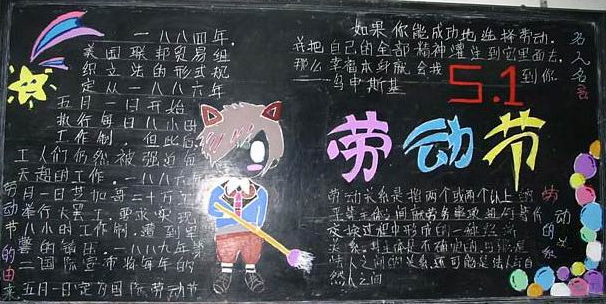 一八八四年,
美国联邦贸易组
织立法的形式规
定从一八八六年
五月一日开始
执行每日八小时
工作制. 但此后
工人们仍然被强迫每
天超时工作. 一八八六年
五月一日芝加哥二十万工
举行大罢工, 要求实现
八小时工作制. 遭到
警的镇压. 一八八九年第
二国际宣布将每年的
五月一日定为国际劳动节
劳动节的由来
如果你能成功地选择劳动,
并把自己的全部精神灌注到它里面去,
那么幸福本身就会找到你
——乌申斯基
名人名言
5.1
劳动节
劳动关系是指两个或两个以上的
之间
过程中形成的一种
关系. 其主体是不确定的,
之间的关系, 还可能是法人与自
然人之间
劳动的关系